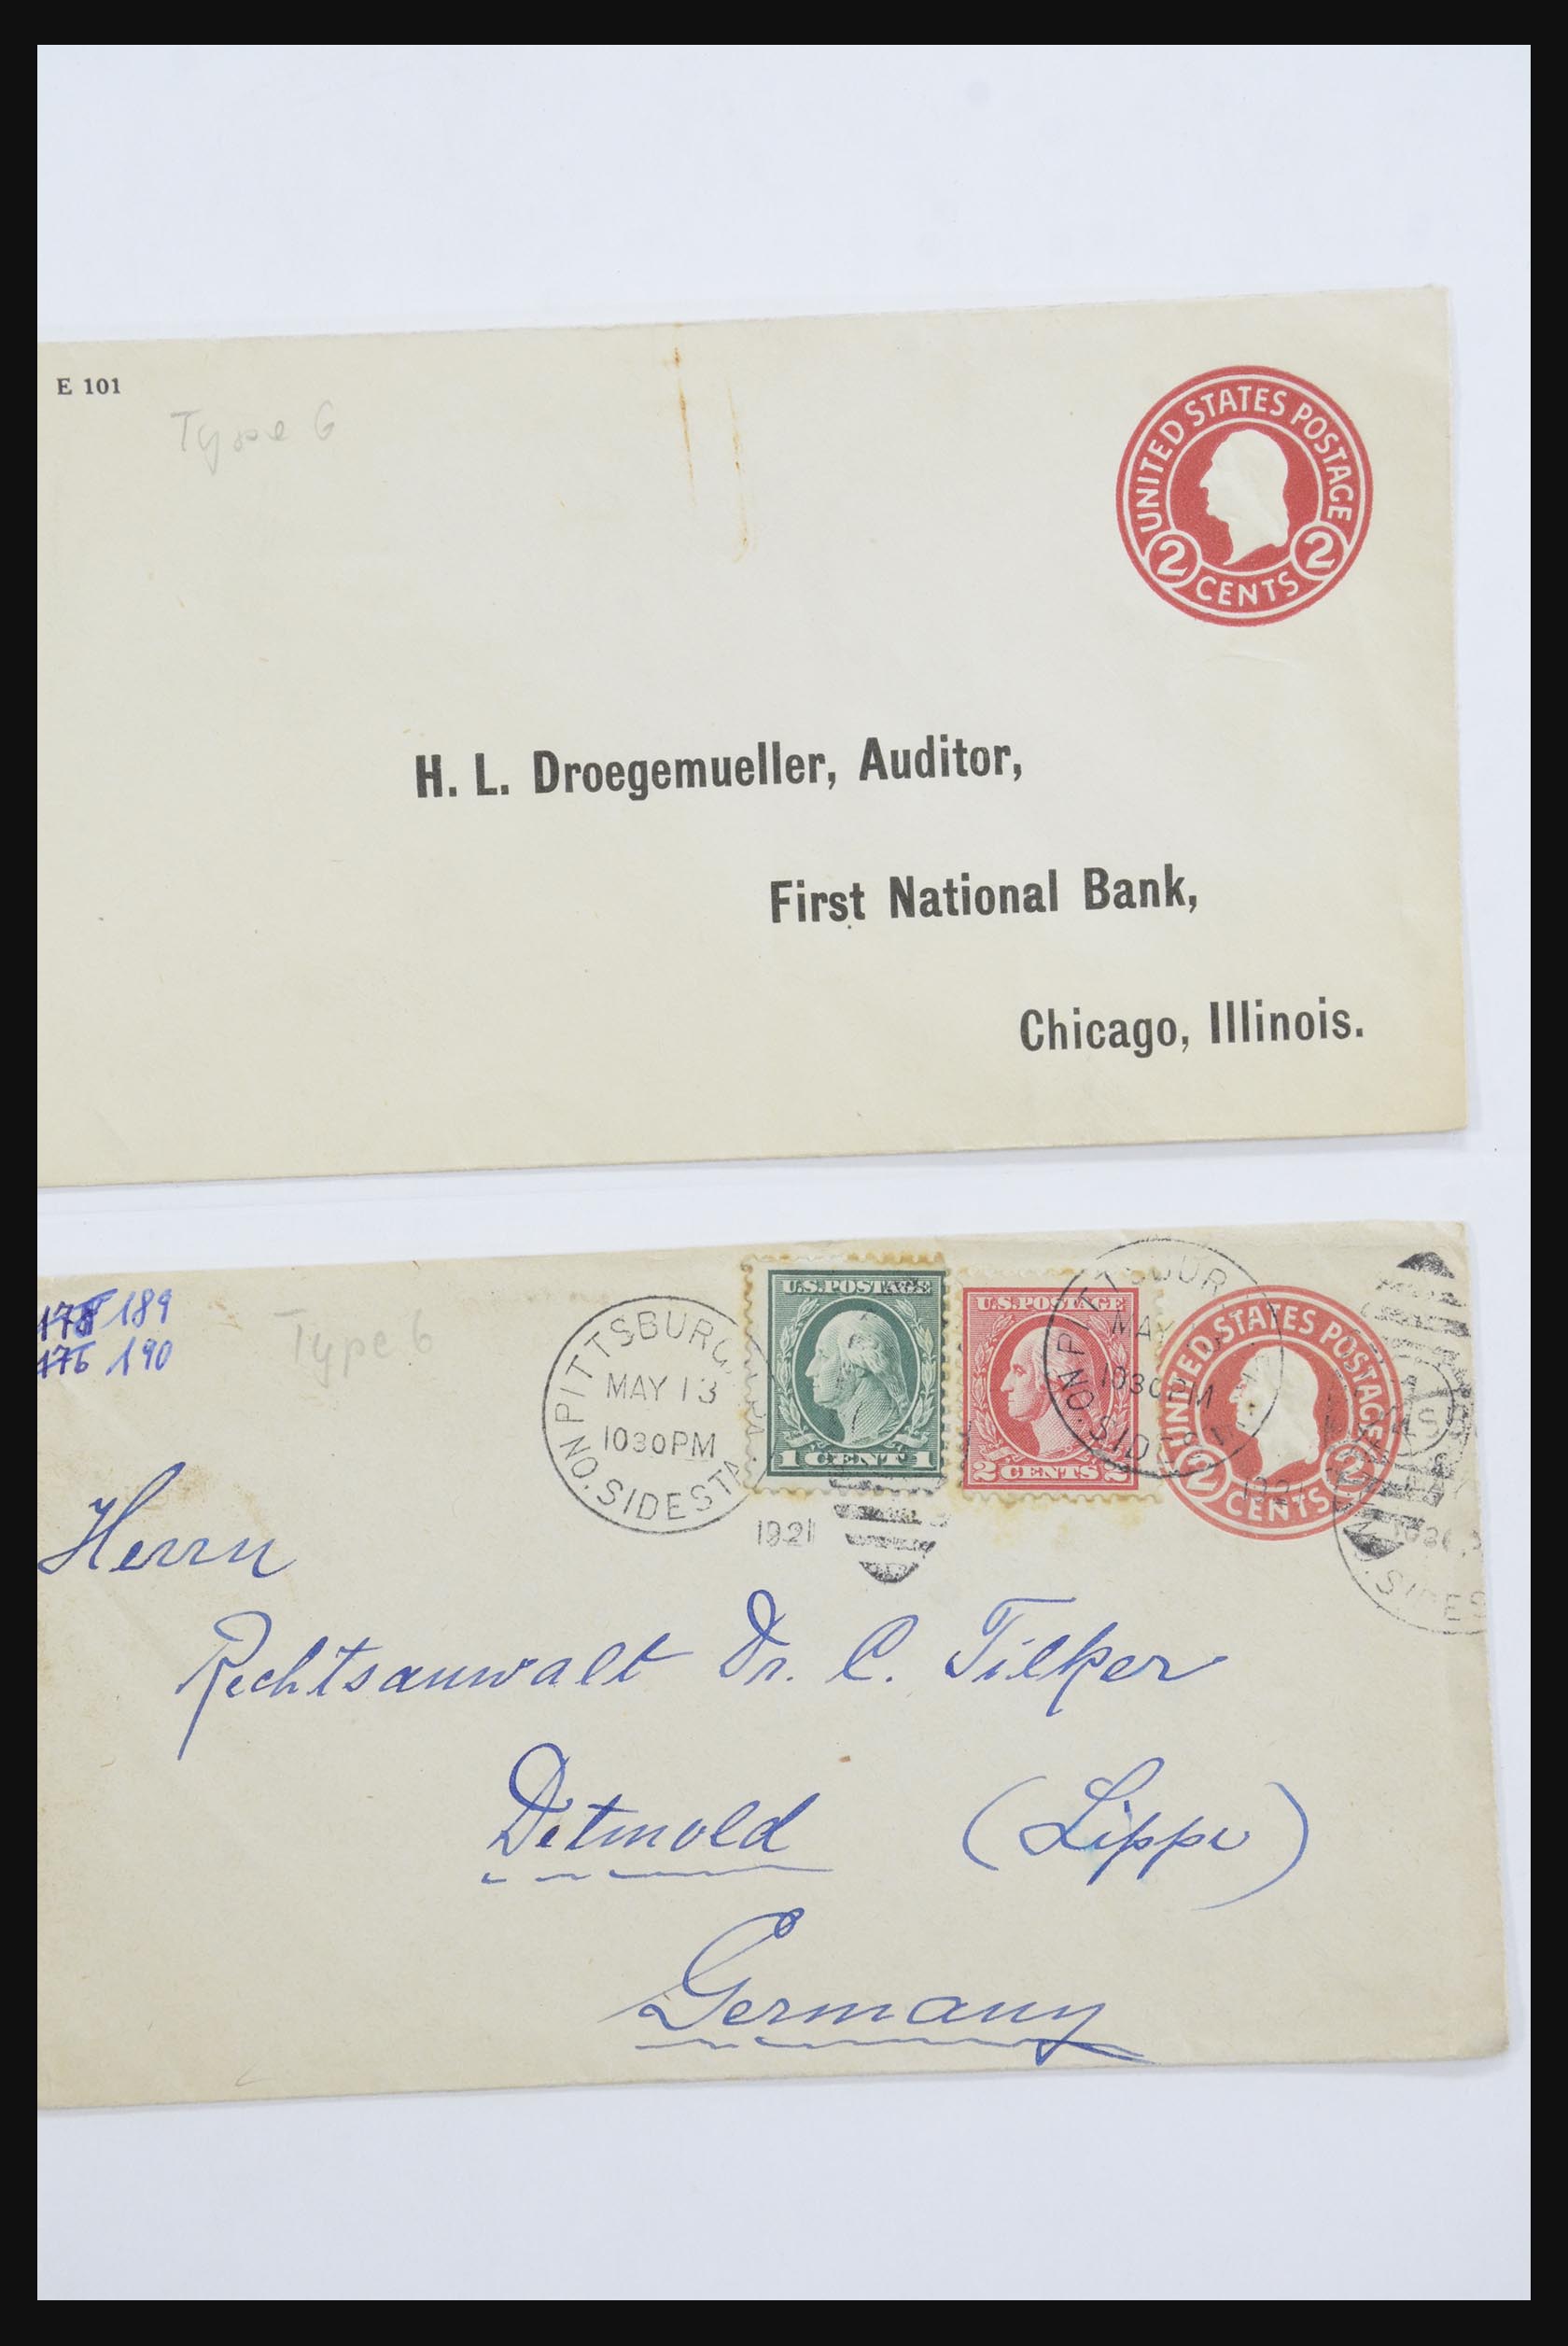 E 101
Type 6
UNITED STATES POSTAGE
2 CENTS 2
H. L. Droegemueller, Auditor,
First National Bank,
Chicago, Illinois.
178 189
176 190
Type 6
PITTSBURG
MAY 13
1030PM
NO. SIDE STA
1921
U.S. POSTAGE
1 CENT 1
U.S. POSTAGE
2 CENTS 2
PITTSBUR
MAY
1030PM
NO. SIDE S
1921
UNITED STATES POSTAGE
2 CENTS 2
1030
SIDE S
Herrn
Rechtsanwalt Dr. C. Tilker
Detmold (Lippe)
Germany